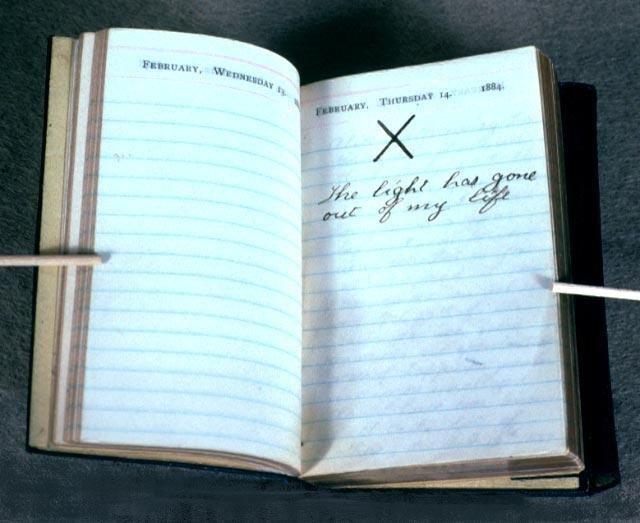 FEBRUARY, WEDNESDAY 13.
FEBRUARY, THURSDAY 14. 1884.
X
The light has gone
out of my life